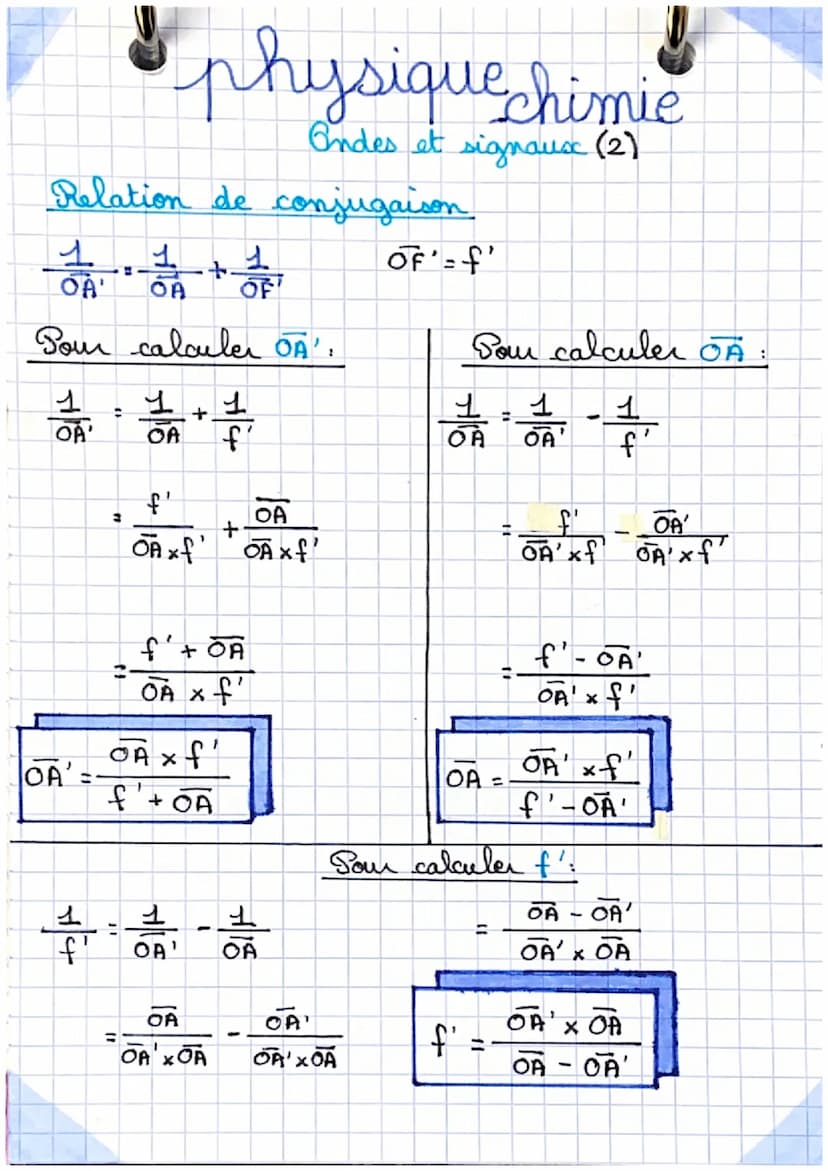 physique chimie
Ondes et signaux (2)
Relation de conjugaison
1/O̅A̅' = 1/O̅A̅ + 1/O̅F̅'
O̅F̅' = f'
Pour calculer O̅A̅' :
1/O̅A̅' = 1/O̅A̅ + 1/f'
= f'/(O̅A̅ × f') + O̅A̅/(O̅A̅ × f')
= (f' + O̅A̅)/(O̅A̅ × f')
O̅A̅' = (O̅A̅ × f')/(f' + O̅A̅)
Pour calculer O̅A̅ :
1/O̅A̅ = 1/O̅A̅' - 1/f'
= f'/(O̅A̅' × f') - O̅A̅'/(O̅A̅' × f')
= (f' - O̅A̅')/(O̅A̅' × f')
O̅A̅ = (O̅A̅' × f')/(f' - O̅A̅')
Pour calculer f' :
1/f' = 1/O̅A̅' - 1/O̅A̅
= O̅A̅/(O̅A̅' × O̅A̅) - O̅A̅'/(O̅A̅' × O̅A̅)
= (O̅A̅ - O̅A̅')/(O̅A̅' × O̅A̅)
f' = (O̅A̅' × O̅A̅)/(O̅A̅ - O̅A̅')